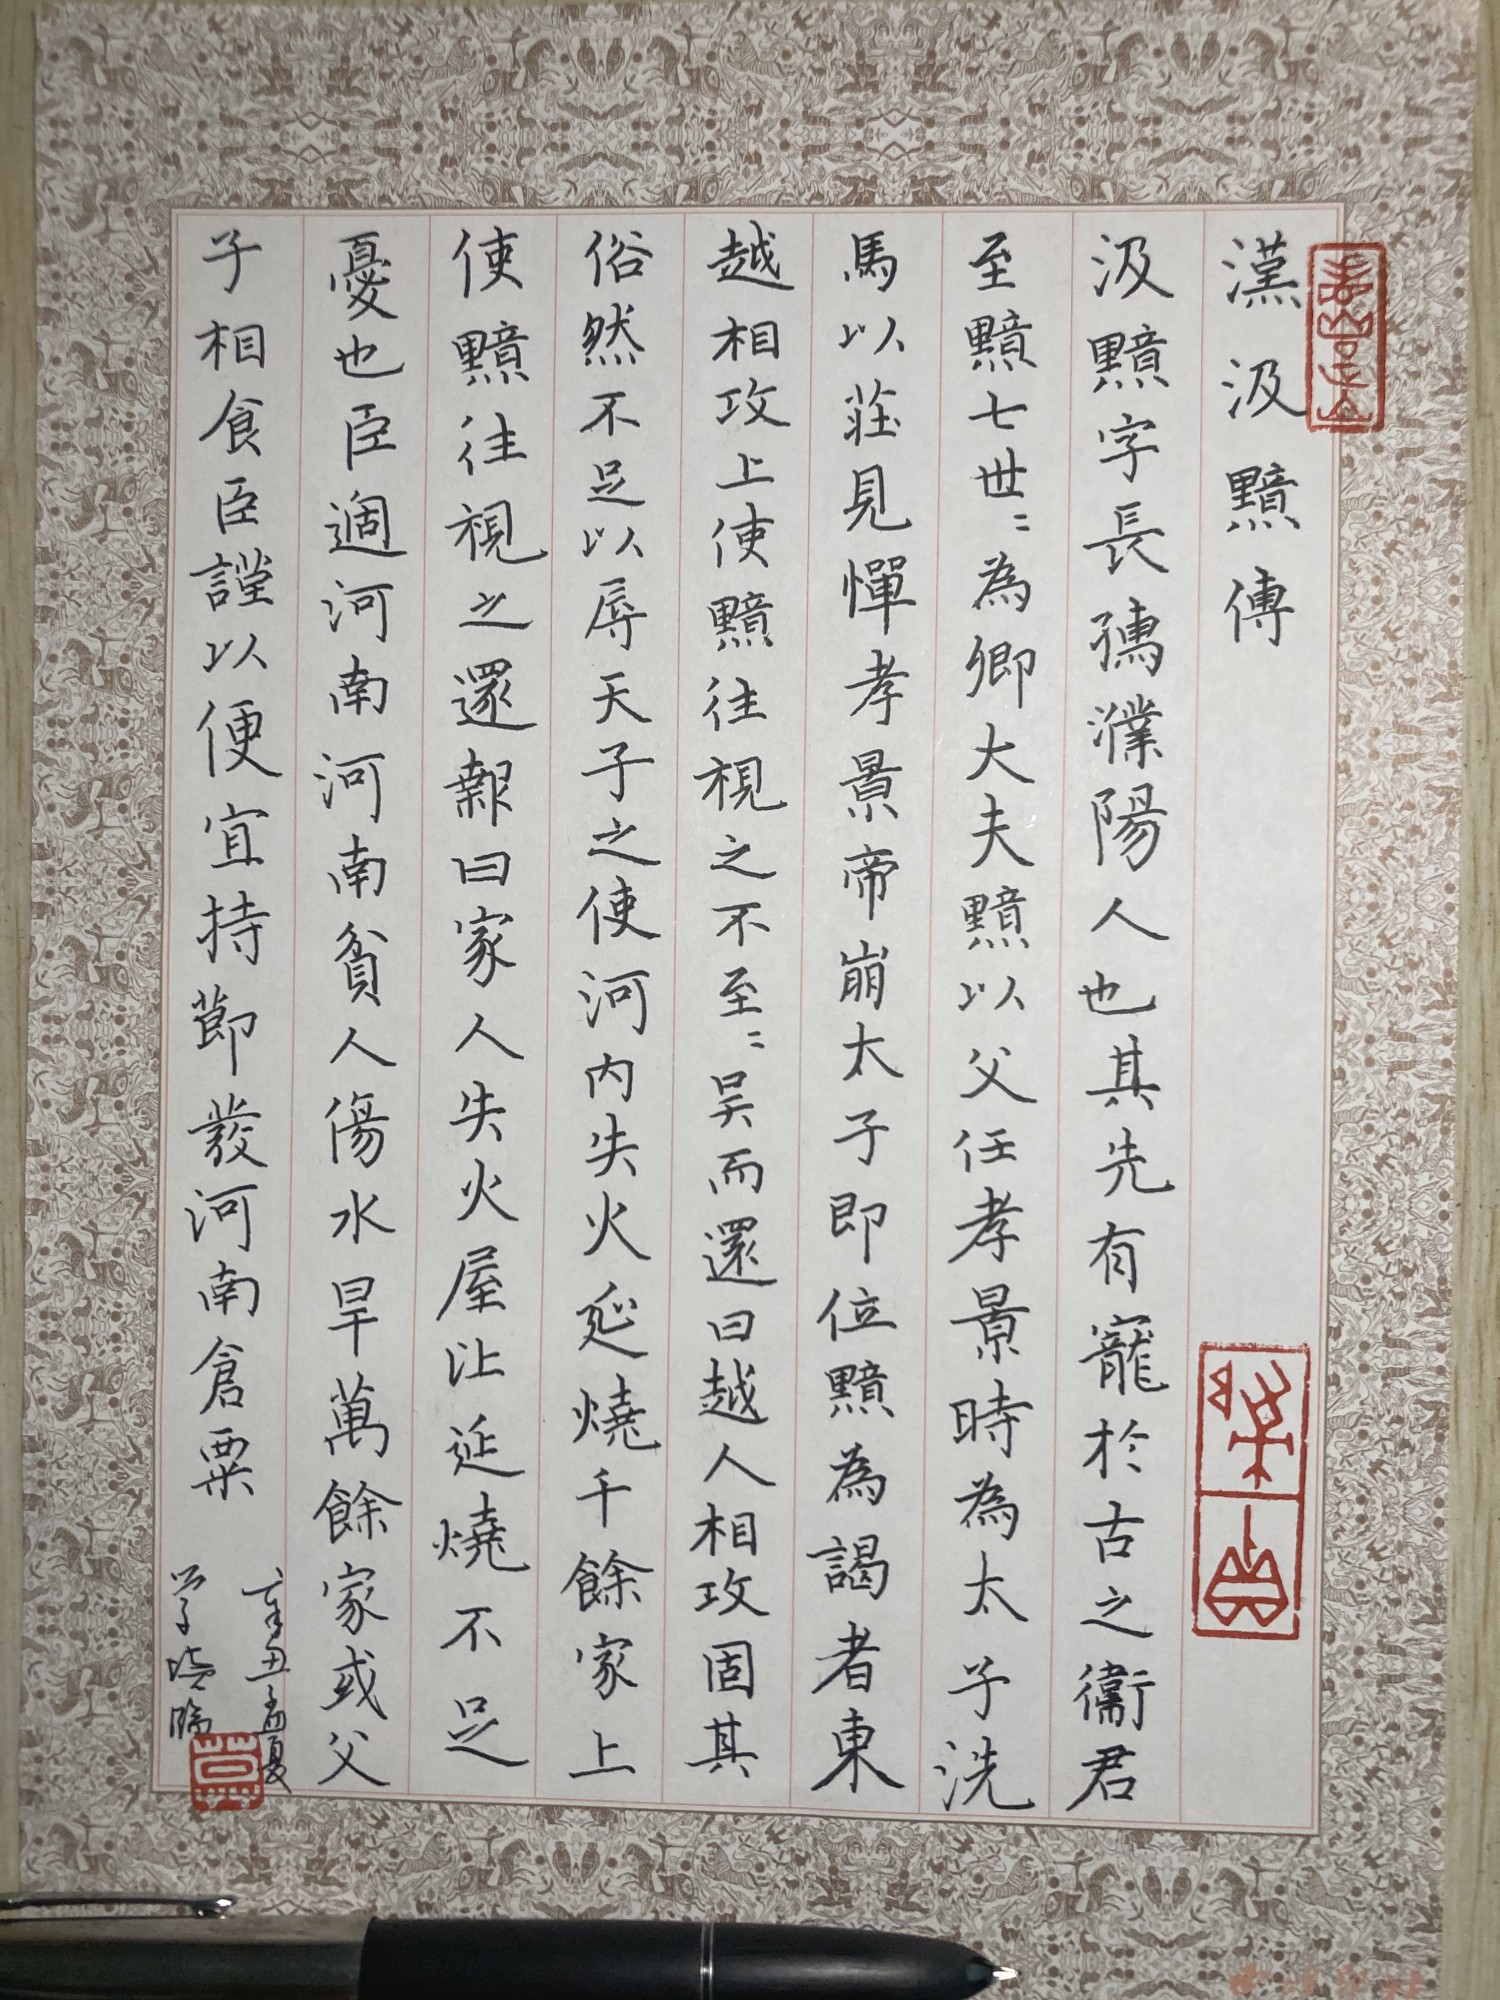 漢汲黯傳
汲黯字長孺濮陽人也其先有寵於古之衞君
至黯七世〻為卿大夫黯以父任孝景時為太子洗
馬以莊見憚孝景帝崩太子即位黯為謁者東
越相攻上使黯往視之不至〻吳而還曰越人相攻固其
俗然不足以辱天子之使河内失火延燒千餘家上
使黯往視之還報曰家人失火屋比延燒不足
憂也臣過河南河南貧人傷水旱萬餘家或父
子相食臣謹以便宜持節發河南倉粟
辛丑孟夏